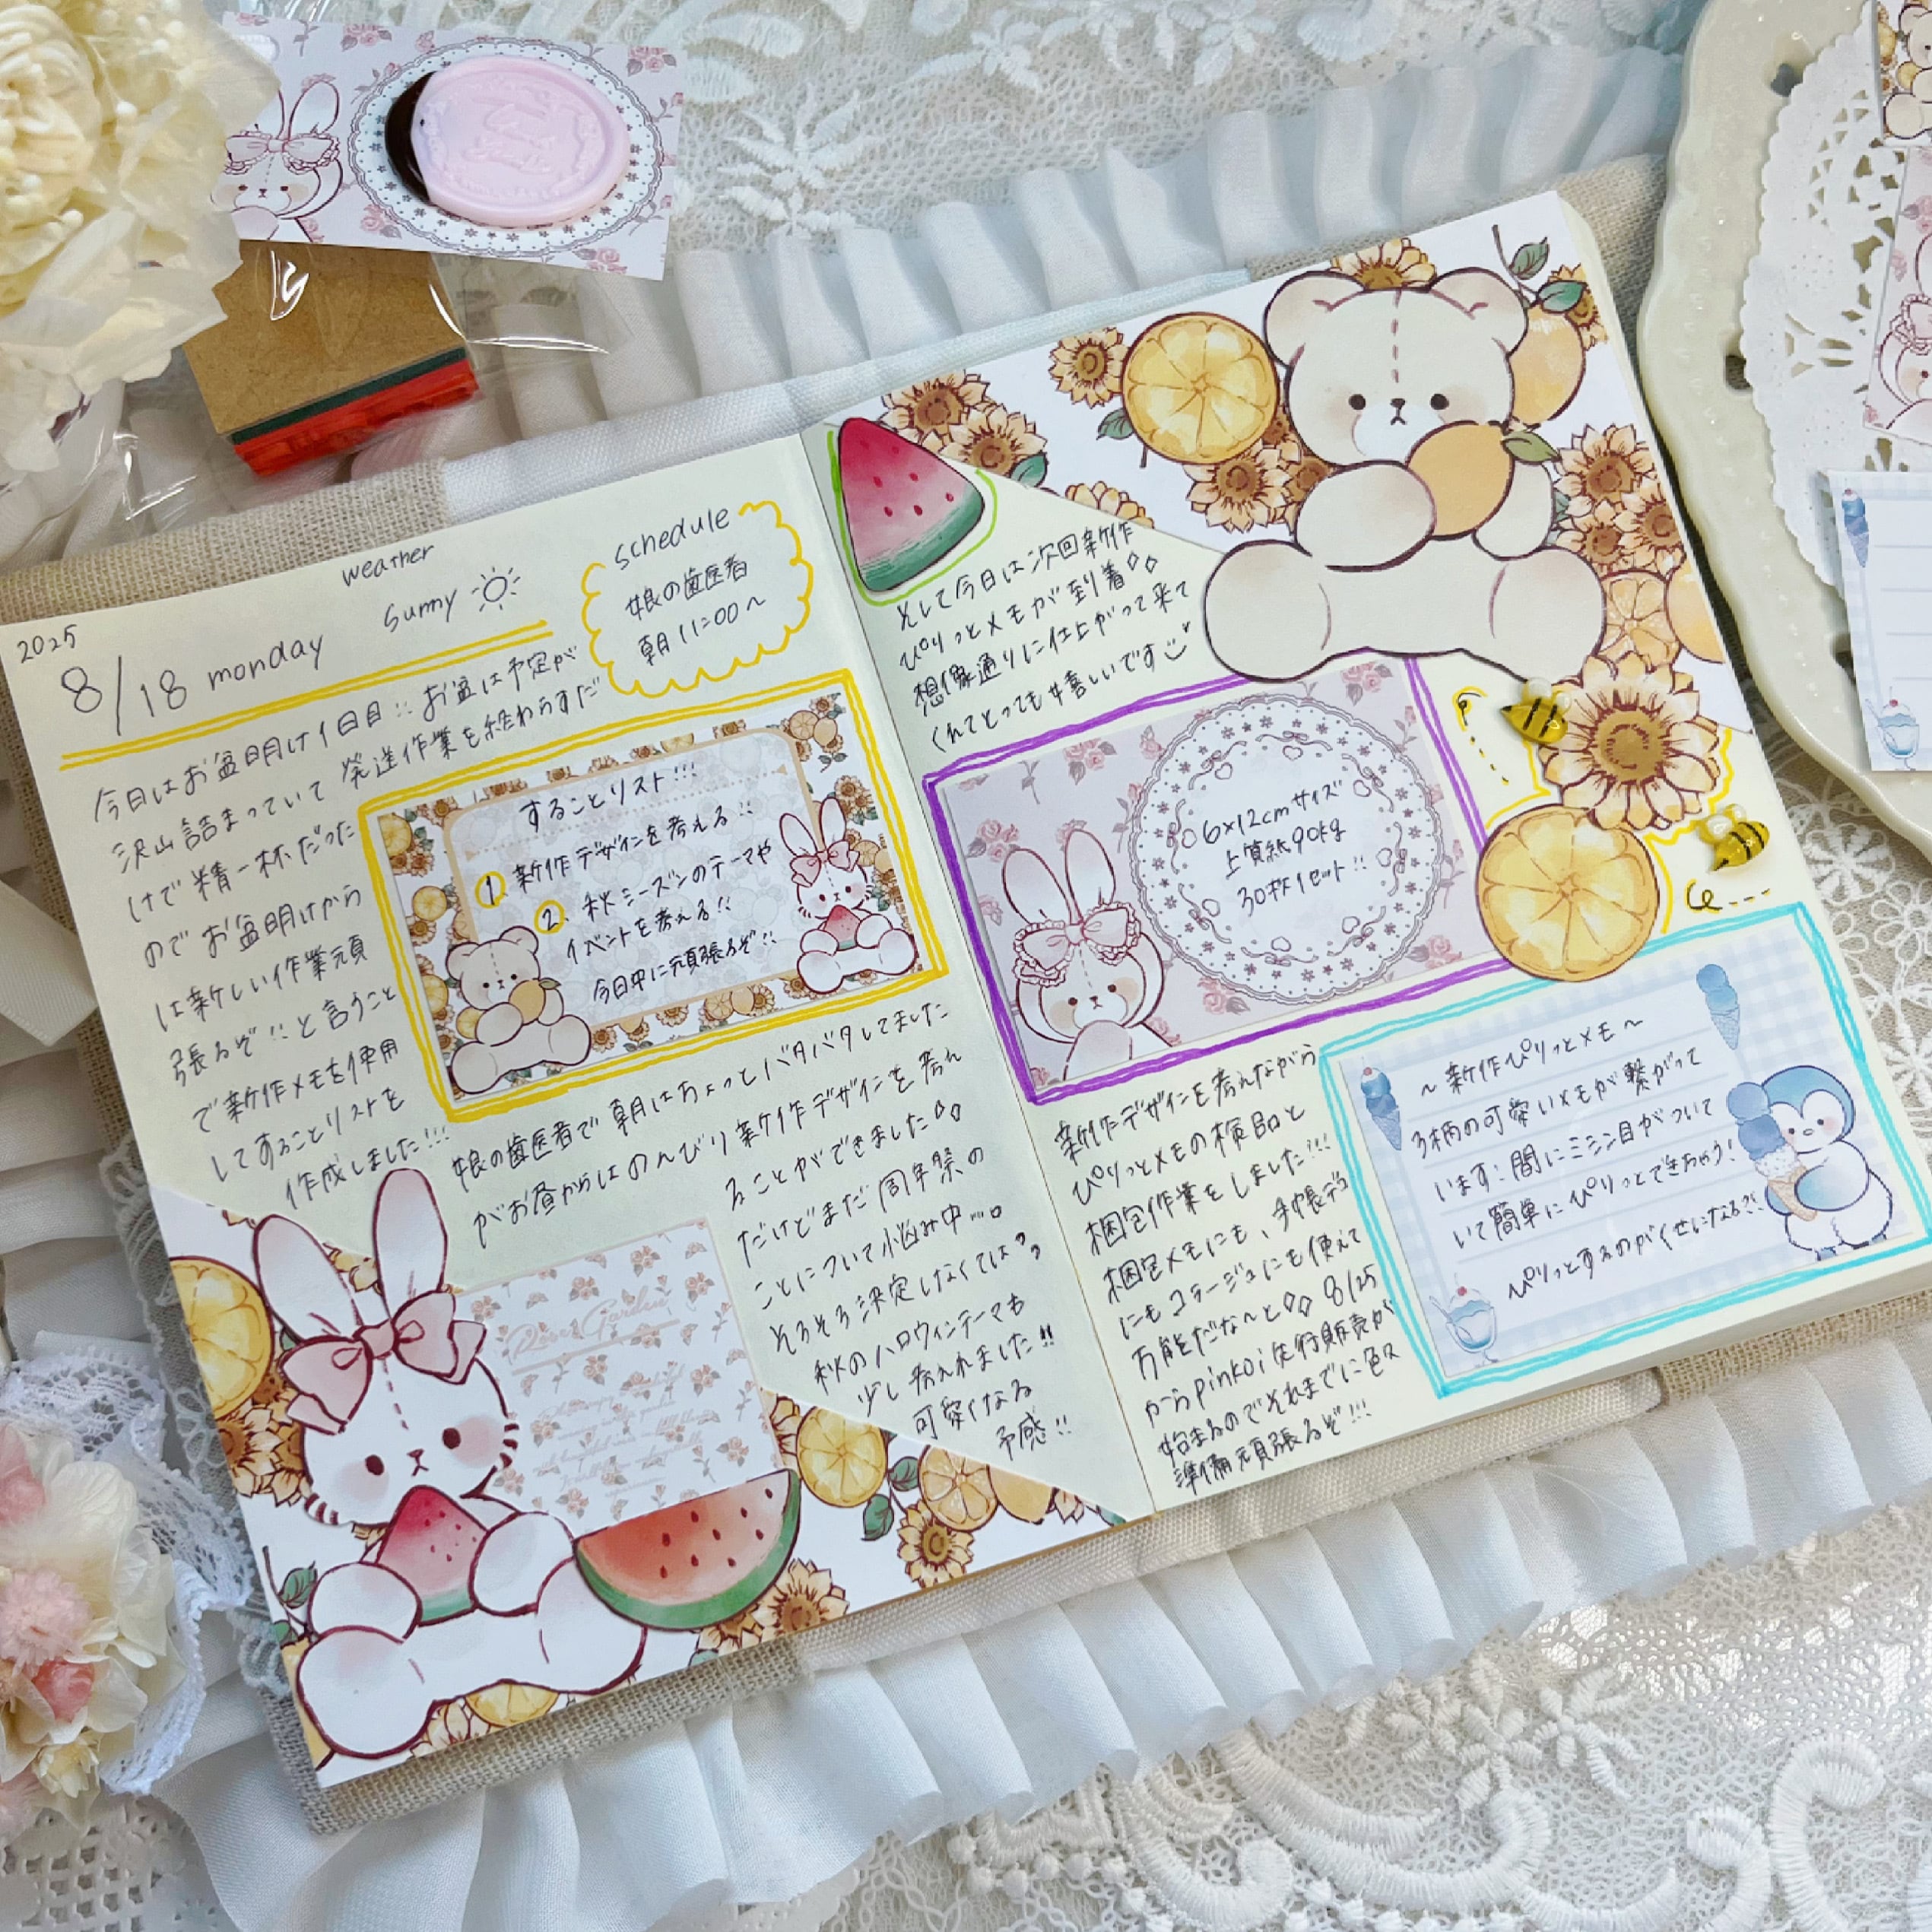 2025
8/18 monday
weather
sunny
schedule
娘の歯医者
朝11:00〜
今日はお盆明け1日目:: お盆は予定が
沢山詰まっていて発送作業を終わらすだ
けで精一杯だった
のでお盆明けから
は新しい作業頑
張るぞ!! と言うこと
で新作メモを使用
してすることリストを
作成しました!!!
することリスト!!!
1、新作デザインを考える!!
2、秋シーズンのテーマや
イベントを考える!!
今日中に頑張るぞ!!
娘の歯医者で朝はちょっとバタバタしてました
がお昼からはのんびり新作デザインを考え
ることができました
だけどまだ周年祭の
ことについて小悩み中...。
そろそろ決定しなくては
秋のハロウィンテーマも
少し考えれました!!
可愛くなる
予感!!
Rose Garden
そして今日は次回新作
ぴりっとメモが到着
想像通りに仕上がって来て
くれてとっても嬉しいです
6×12cmサイズ
上質紙90kg
30枚1セット!!
新作デザインを考えながら
ぴりっとメモの検品と
梱包作業をしました!!!
梱包メモにも、手帳デコ
にもコラージュにも使えて
万能だな〜と 8/25
からpinkoi先行販売が
始まるのでそれまでに色々
準備頑張るぞ!!!
〜新作ぴりっとメモ〜
3柄の可愛いメモが繋がって
います: 間にミシン目がついて
いて簡単にぴりっとできちゃう!
ぴりっとするのがくせになる?!